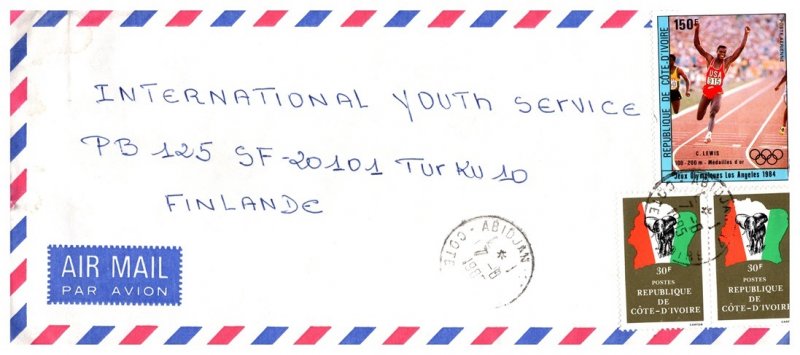 150F
POSTE AERIENNE
REPUBLIQUE DE CÔTE-D'IVOIRE
USA
915
C. LEWIS
100 - 200 m - Médailles d'or
Jeux Olympiques Los Angeles 1984
INTERNATIONAL YOUTH SERVICE
PB 125 SF-20101 TURKU 10
FINLANDE
AIR MAIL
PAR AVION
ABIDJAN
COTE
ABIDJAN
30F
POSTES
REPUBLIQUE
DE
CÔTE-D'IVOIRE
30F
POSTES
REPUBLIQUE
DE
CÔTE-D'IVOIRE